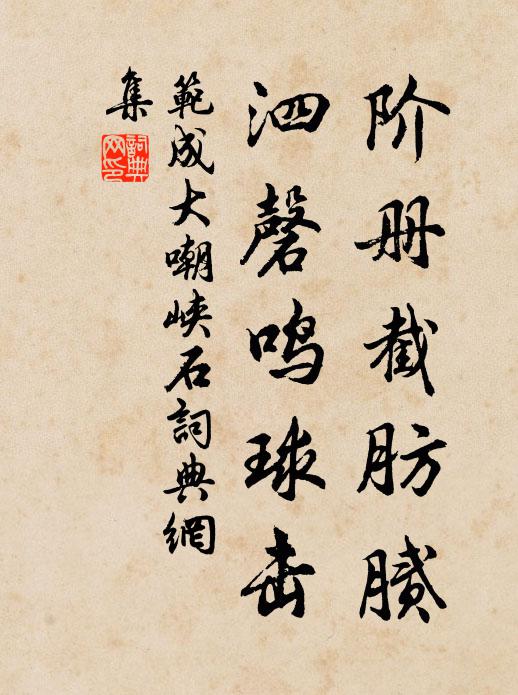 阶册截肪腻
泗磬鸣球击
範成大嘲峡石詞典網
集
詞典网印